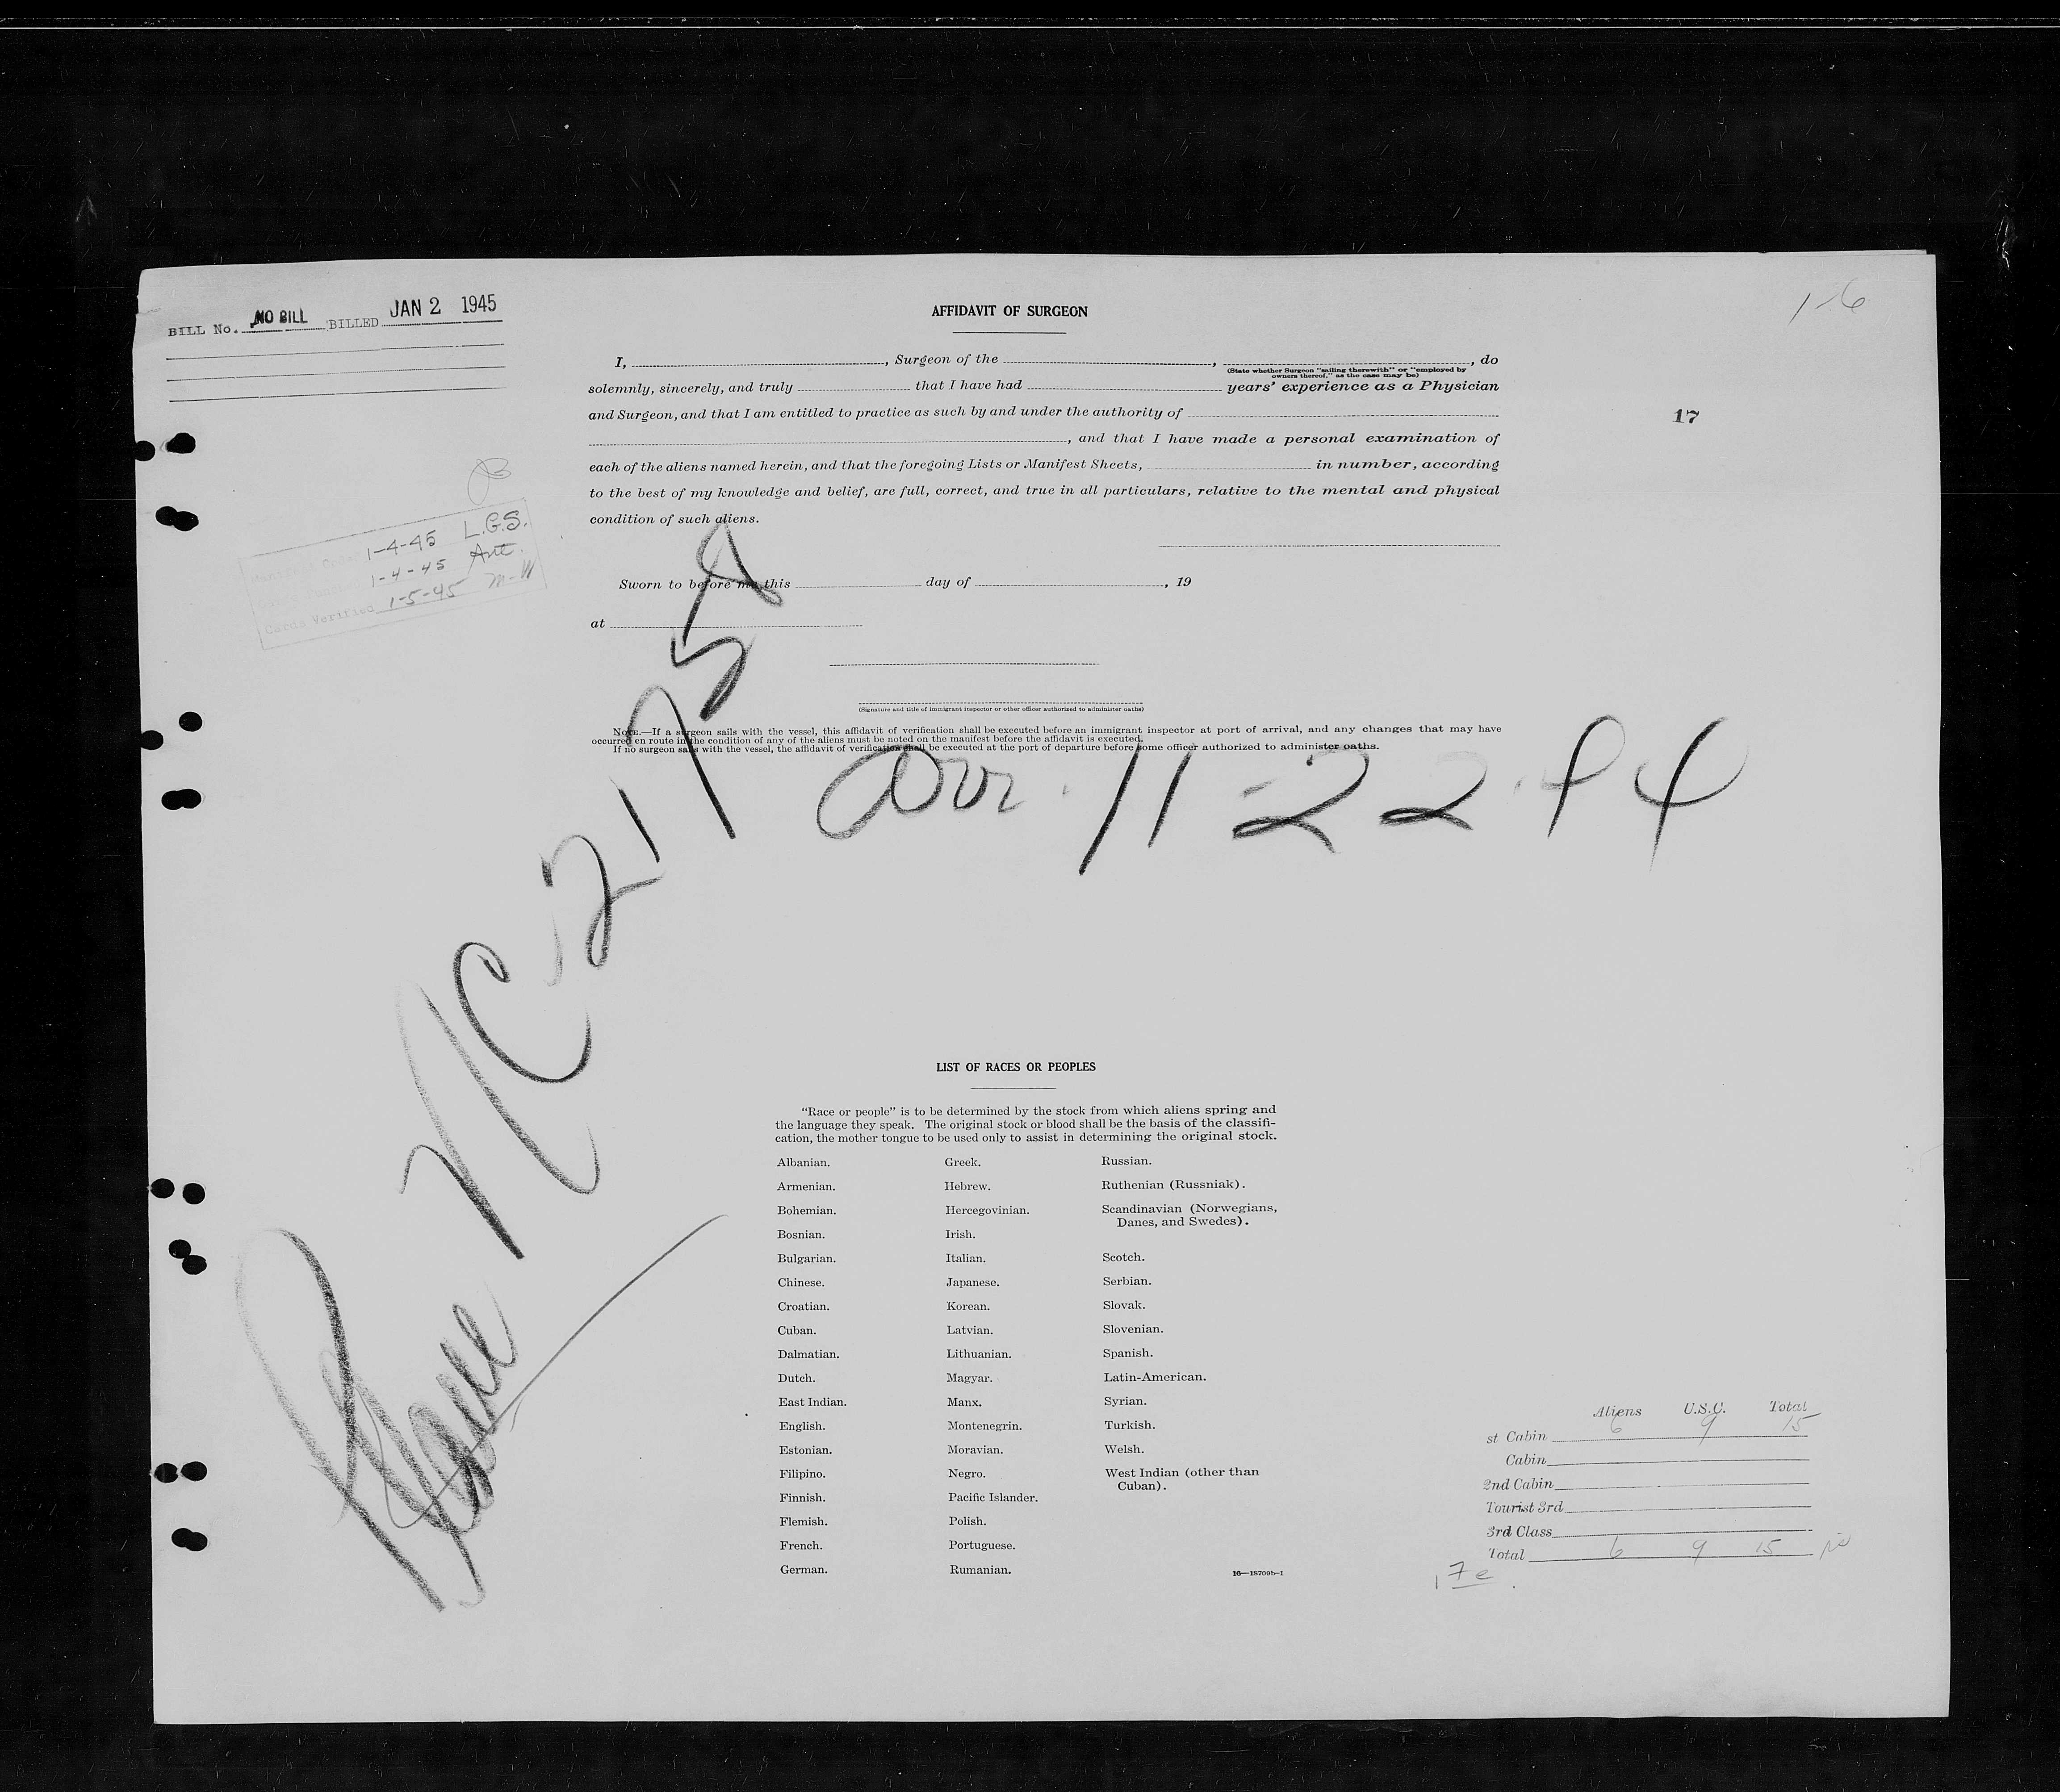 BILL No. NO BILL BILLED JAN 2 1945
1-6
AFFIDAVIT OF SURGEON
I, , Surgeon of the , , do
(State whether Surgeon "sailing therewith" or "employed by
owners thereof," as the case may be)
solemnly, sincerely, and truly that I have had years' experience as a Physician
and Surgeon, and that I am entitled to practice as such by and under the authority of
17
, and that I have made a personal examination of
each of the aliens named herein, and that the foregoing Lists or Manifest Sheets, in number, according
to the best of my knowledge and belief, are full, correct, and true in all particulars, relative to the mental and physical
condition of such aliens.
1-4-45 L.G.S.
1-4-45
Cards Verified 1-5-45 M-W
Sworn to before me this day of , 19
at
(Signature and title of immigrant inspector or other officer authorized to administer oaths)
NOTE.—If a surgeon sails with the vessel, this affidavit of verification shall be executed before an immigrant inspector at port of arrival, and any changes that may have
occurred en route in the condition of any of the aliens must be noted on the manifest before the affidavit is executed.
If no surgeon sails with the vessel, the affidavit of verification shall be executed at the port of departure before some officer authorized to administer oaths.
arr. 11-22-44
Plane NC-21758
LIST OF RACES OR PEOPLES
"Race or people" is to be determined by the stock from which aliens spring and
the language they speak. The original stock or blood shall be the basis of the classifi-
cation, the mother tongue to be used only to assist in determining the original stock.
Albanian.
Armenian.
Bohemian.
Bosnian.
Bulgarian.
Chinese.
Croatian.
Cuban.
Dalmatian.
Dutch.
East Indian.
English.
Estonian.
Filipino.
Finnish.
Flemish.
French.
German.
Greek.
Hebrew.
Hercegovinian.
Irish.
Italian.
Japanese.
Korean.
Latvian.
Lithuanian.
Magyar.
Manx.
Montenegrin.
Moravian.
Negro.
Pacific Islander.
Polish.
Portuguese.
Rumanian.
Russian.
Ruthenian (Russniak).
Scandinavian (Norwegians,
Danes, and Swedes).
Scotch.
Serbian.
Slovak.
Slovenian.
Spanish.
Latin-American.
Syrian.
Turkish.
Welsh.
West Indian (other than
Cuban).
16—18709b-1
Aliens U.S.C. Total
st Cabin 6 9 15
Cabin
2nd Cabin
Tourist 3rd
3rd Class
Total 6 9 15
17e